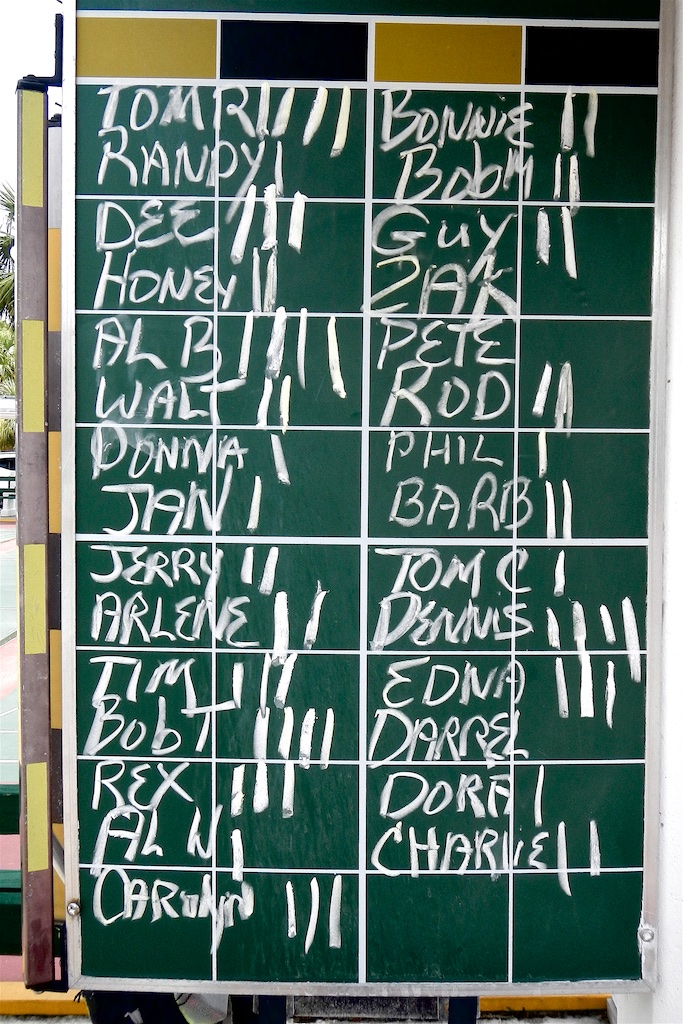 TOM R
RANDY
DEE
HONEY
AL B
WALT
DONNA
JAN
JERRY
ARLENE
TIM
BOB T
REX
AL W
CAROLYN
BONNIE
BOB M
GUY
ZAK
PETE
ROD
PHIL
BARB
TOM C
DENNIS
EDNA
DARREL
DORA
CHARLIE